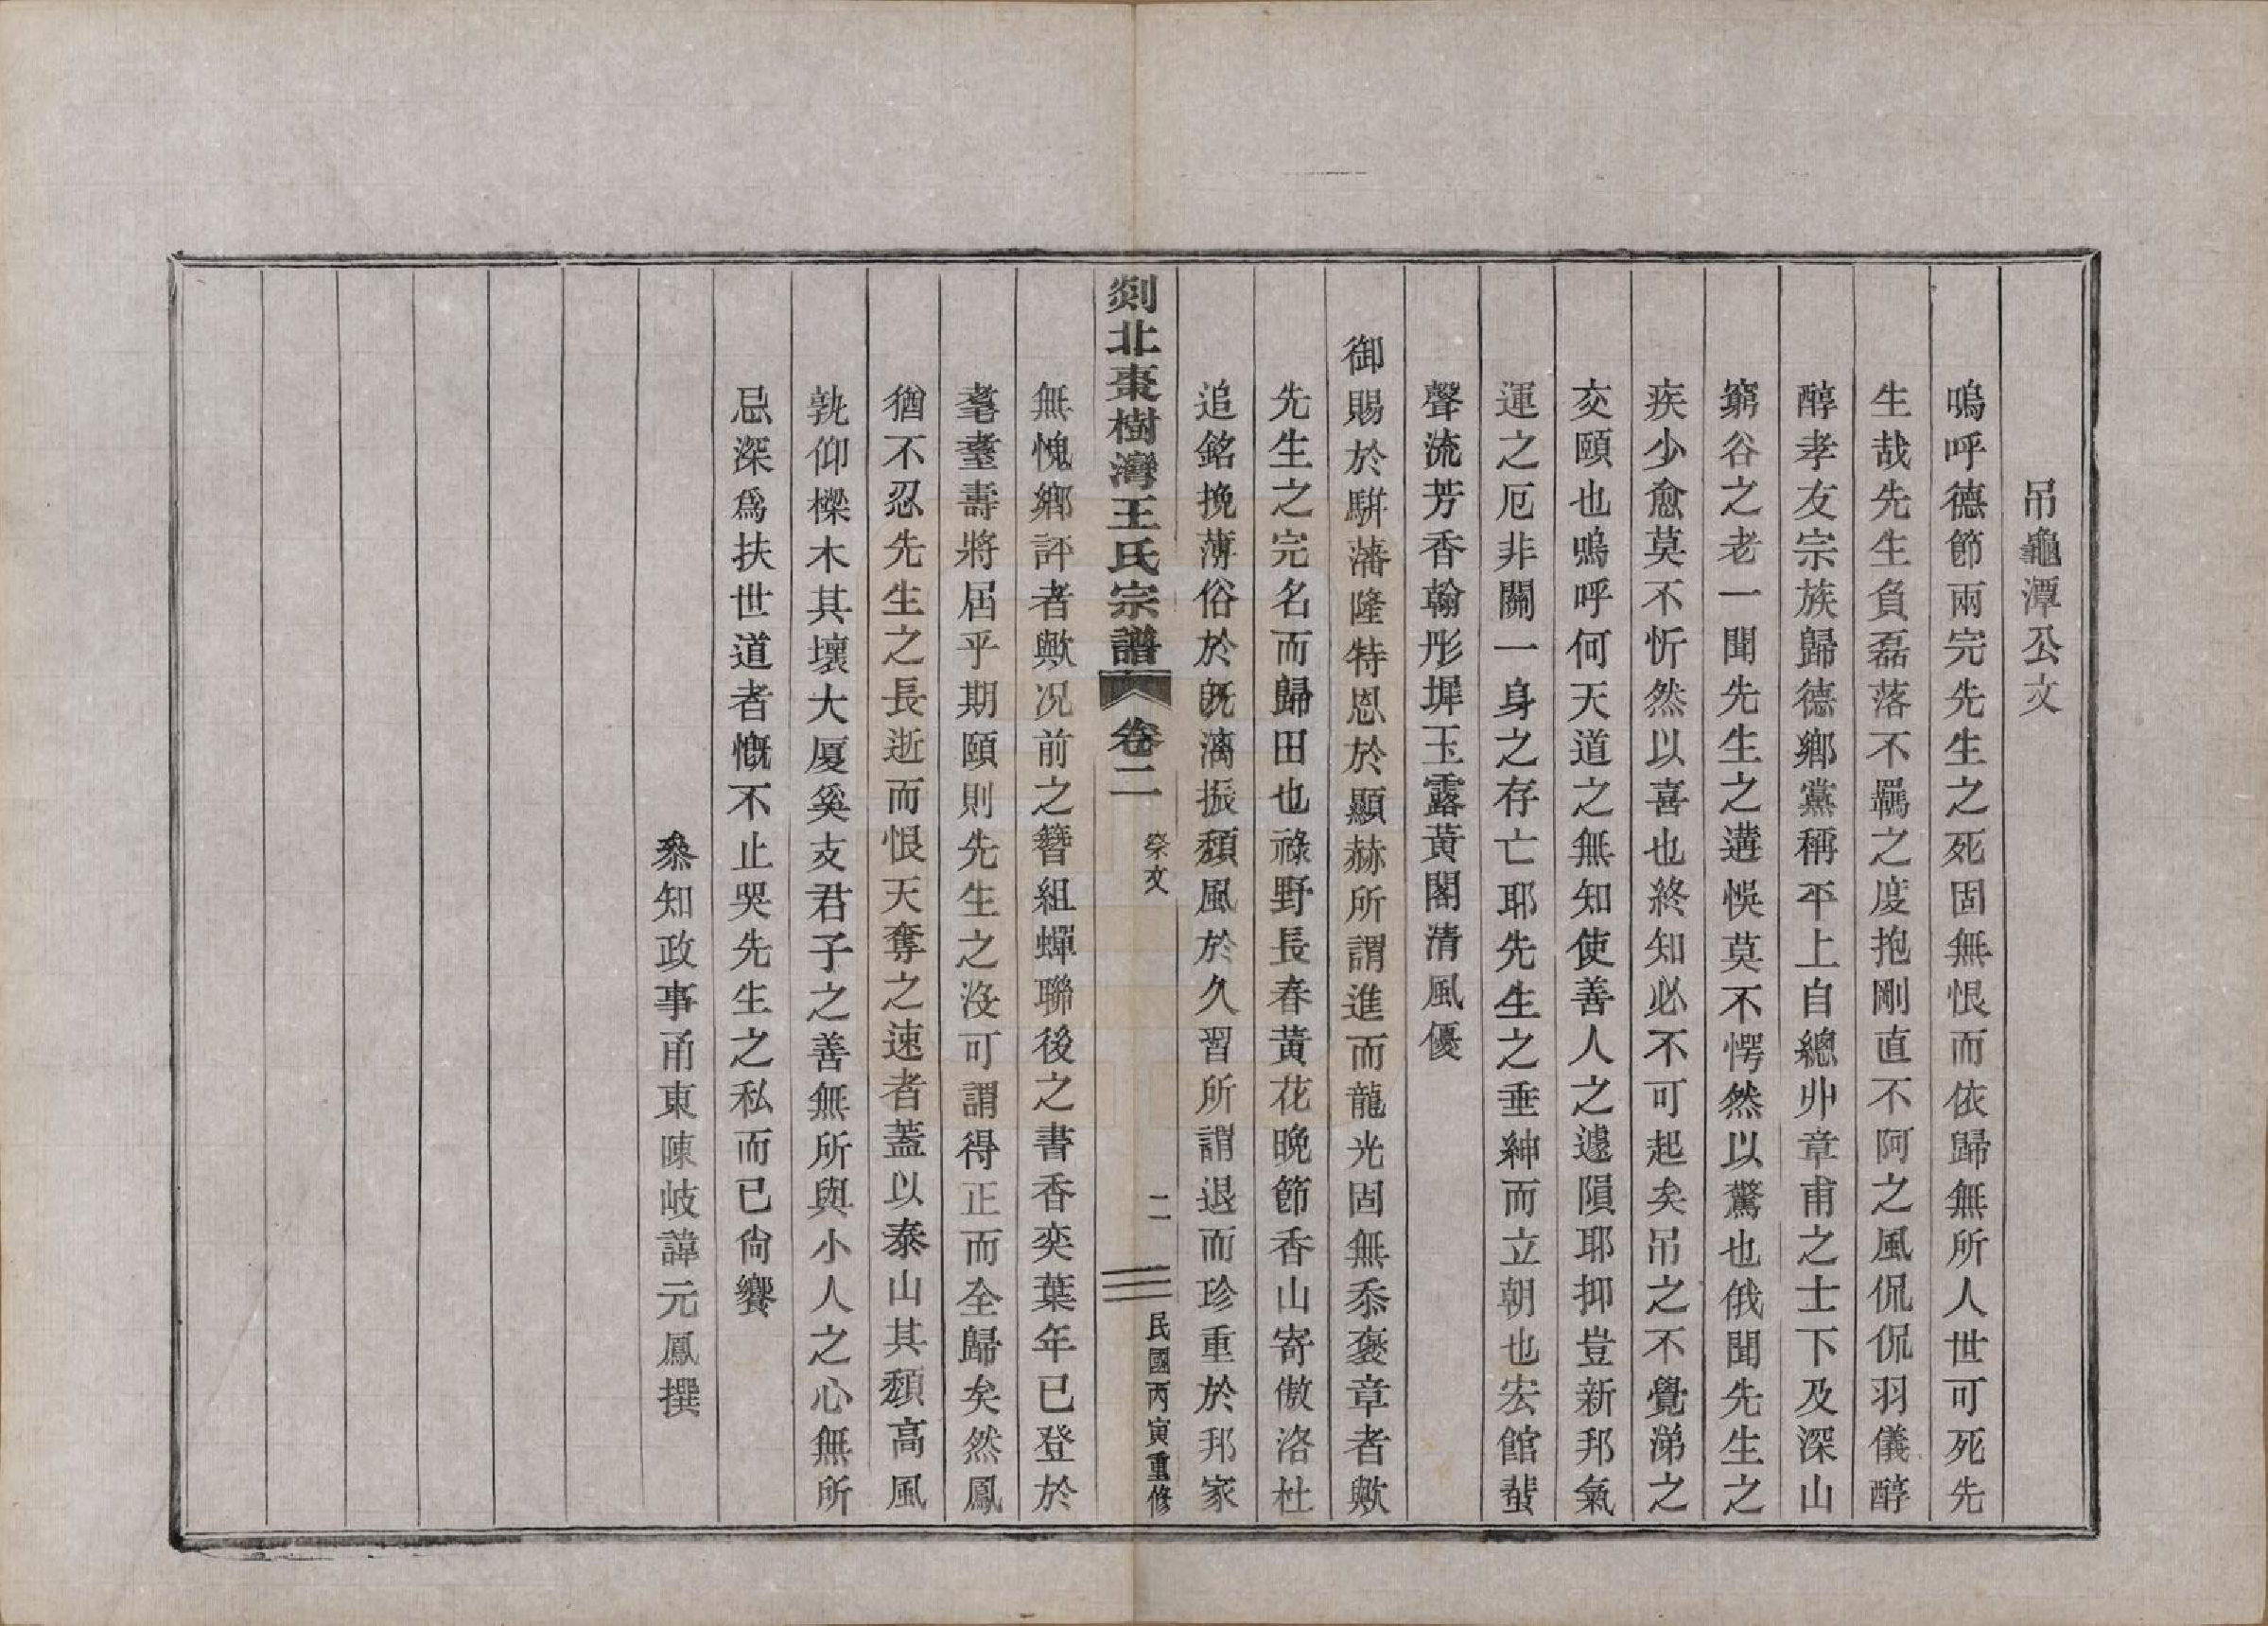 吊龜潭公文
嗚呼德節兩完先生之死固無恨而依歸無所人世可死先
生哉先生負磊落不羈之度抱剛直不阿之風侃侃羽儀醇
醇孝友宗族歸德鄉黨稱平上自總丱章甫之士下及深山
窮谷之老一聞先生之遘悞莫不愕然以驚也俄聞先生之
疾少愈莫不忻然以喜也終知必不可起矣吊之不覺涕之
交頤也嗚呼何天道之無知使善人之遽隕耶抑豈新邦氣
運之厄非關一身之存亡耶先生之垂紳而立朝也宏館蜚
聲流芳香翰彤墀玉露黃閣清風優
御賜於駢藩隆特恩於顯赫所謂進而龍光固無忝褒章者歟
先生之完名而歸田也祿野長春黃花晚節香山寄傲洛杜
追銘挽薄俗於旣漓振頹風於久習所謂退而珍重於邦家
剡北棗樹灣王氏宗譜 卷二 祭文 二 民國丙寅重修
無愧鄉評者歟況前之簪組蟬聯後之書香奕葉年已登於
耄耋壽將屆乎期頤則先生之沒可謂得正而全歸矣然鳳
猶不忍先生之長逝而恨天奪之速者蓋以泰山其頹高風
孰仰樑木其壞大厦奚支君子之善無所與小人之心無所
忌深爲扶世道者慨不止哭先生之私而已尙饗
叅知政事甬東陳岐諱元鳳撰